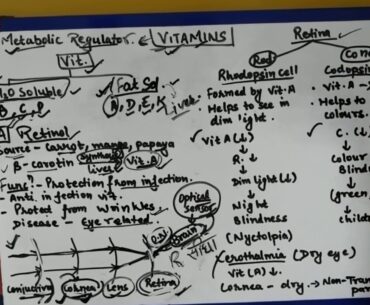 Metabolic Regulator. VITAMINS
Vit.
H2O Soluble
B, C, P
Fat Sol.
A, D, E, K
Liver
A Retinol
Source - Carrot, mango, papaya
β - carotin Synthesis Vit.A
liver
Func! - Protection from infection.
- Anti. infection vit.
- Photed from Wrinkles.
Disease - Eye related.
Optical
sensor
O.N
Brain
R
Conjuctiva Cornea Lens Retina
Retina
Rod
Rhodopsin Cell
- Formed by Vit.A
- Helps to see in
dim light.
Vit A (↓)
↓
R. ↓
↓
Dim light (↓)
↓
Night
Blindness
(Nyctolpia)
Xerothalmia (Dry eye)
Vit (A) ↓.
Cornea - dry. → Non-Tran
par
Con
Codopsin
- Vit.A -
- Helps to
colours.
C. (↓)
↓
Colour
Blind
↓
(green,
↓
child